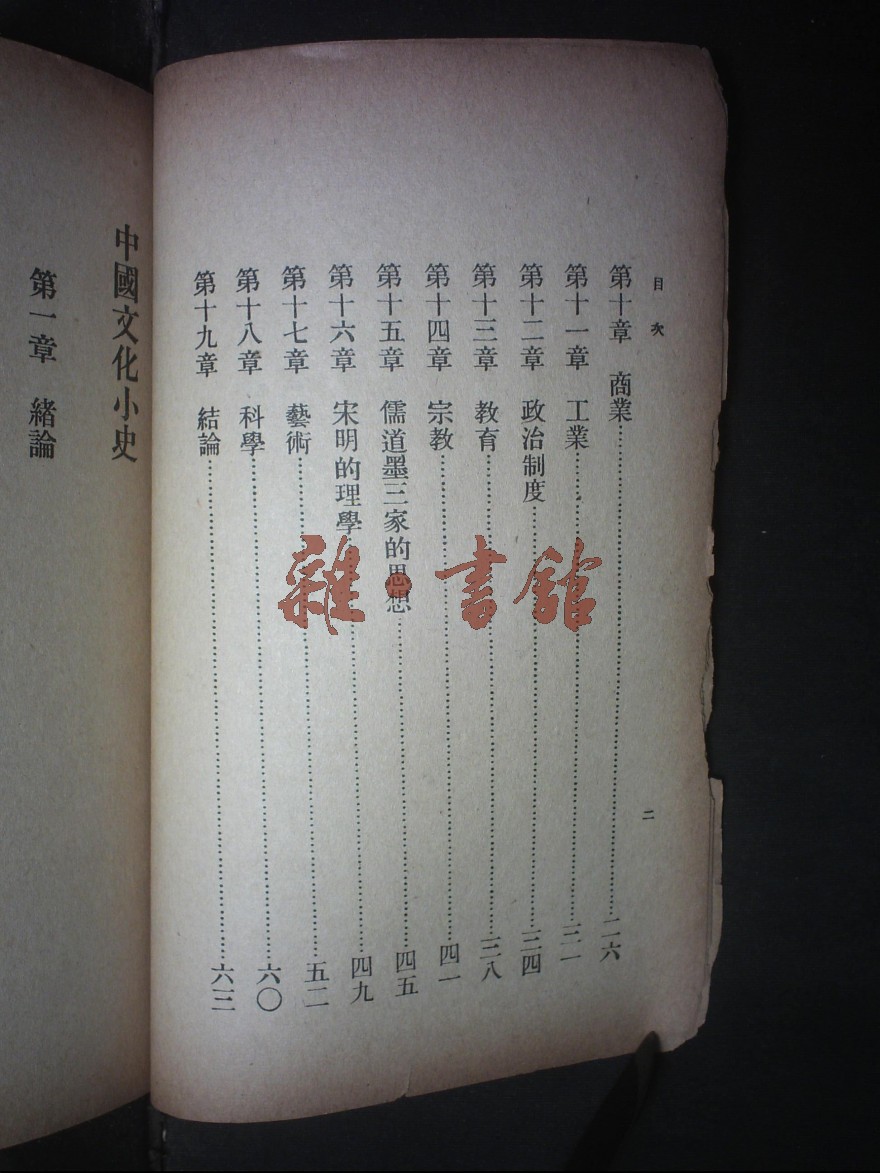 目次
第十章 商業……二六
第十一章 工業……三一
第十二章 政治制度……三四
第十三章 教育……三八
第十四章 宗教……四一
第十五章 儒道墨三家的思想……四五
第十六章 宋明的理學……四九
第十七章 藝術……五二
第十八章 科學……六〇
第十九章 結論……六三
二
中國文化小史
第一章 緒論
雜·書館